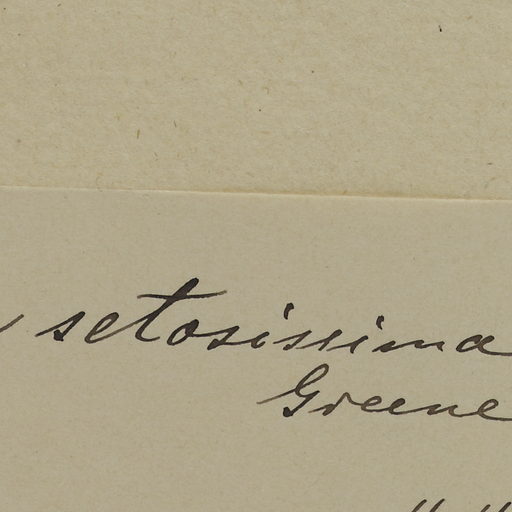 setosissima
Greene